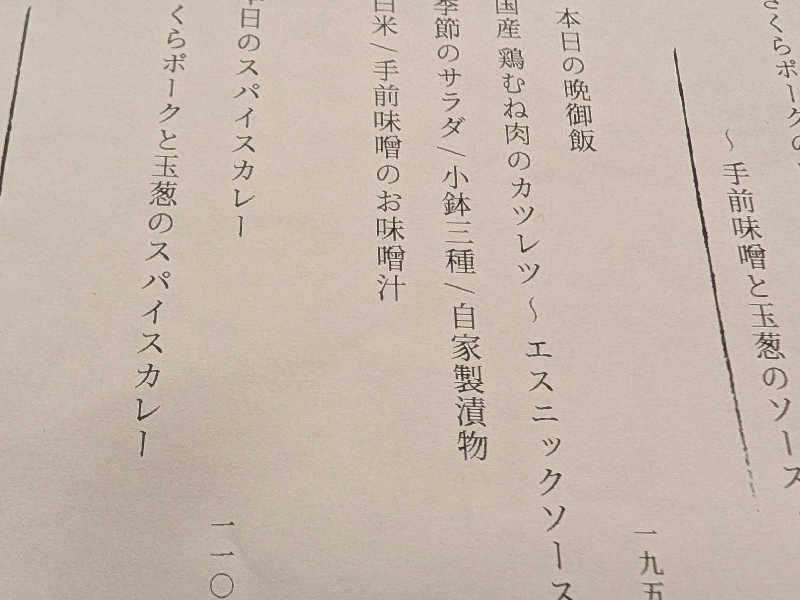 くらポークの
〜手前味噌と玉葱のソース
本日の晩御飯
一九五
国産 鶏むね肉のカツレツ〜エスニックソース
季節のサラダ/小鉢三種/自家製漬物
白米/手前味噌のお味噌汁
本日のスパイスカレー
一一〇
くらポークと玉葱のスパイスカレー